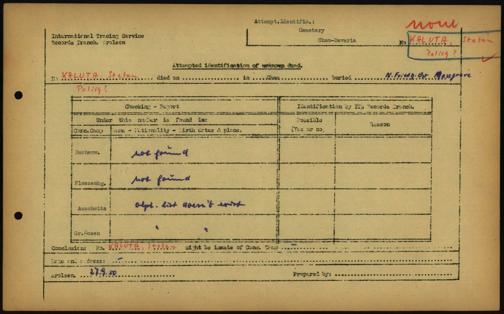 Attempt.Identific.:
none
Cemetery
International Tracing Service
Records Branch. Arolsen
Cham-Bavaria
No. KALUTA Stefan
Polish?
Attempted identification of unknown dead.
KALUTA Stefan died on in Cham buried
Polish?
Checking - Report
Identification by ITS Records Branch.
Under this number is found in:
Possible
Reason
(Conc.Camp) Name - Nationality - Birth dates & place.
(Yes or no)
Buchenw. not found
Flossenbg. not found
Auschwitz alph. list doesn't exist
Gr.Rosen " "
Conclusion: No. KALUTA Stefan might be inmate of Conc. Camp
Arolsen, 27.9.50 Prepared by: